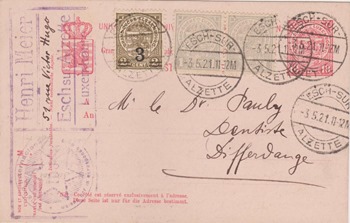 Henri Meier
51 rue Victor Hugo
Esch sur
Luxem
3
2 2
ESCH-SUR
-3.5.21.11-12M
ALZETTE
ESCH-SUR
-3.5.21.11-12M
ALZETTE
ESCH-SUR
-3.5.21.11-12M
ALZETTE
M le Dr. Pauly
Dentiste
Differdange
Ce côté est réservé exclusivement à l'adresse.
Diese Seite ist nur für die Adresse bestimmt.